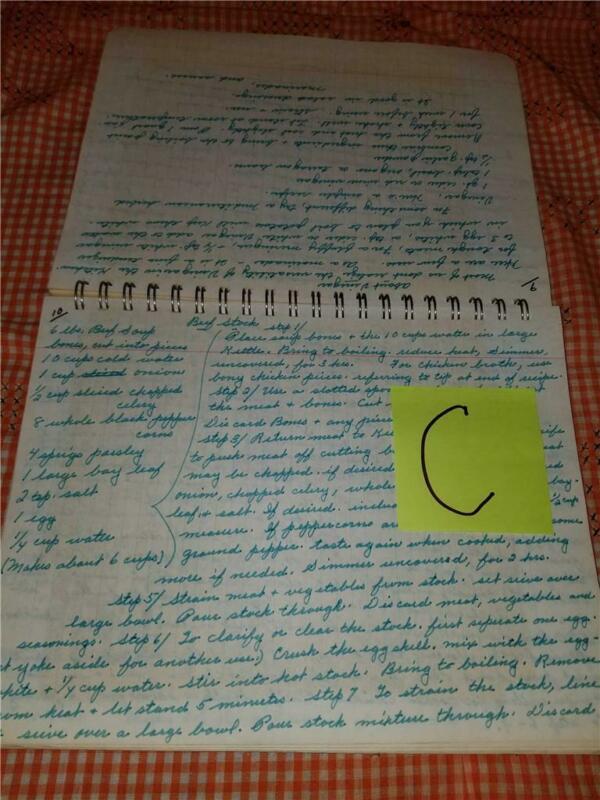 9/
about Vinegar
Most of us dont realize the versatility of Vinegar in the Kitchen
Here are a few uses. As a marinade - It is a fine tenderizer
for tough meats. For fluffy meringue, add 1/4 tsp. white vinegar
to 3 egg whites, a tsp. of white Vinegar add to the water
in which you plan to boil potatoes will keep them white.
For something different, try a Mediterranean herbed
Vinegar, Here's a simple recipe.
1 qt. cider or red wine vinegar
1 tbsp. basil, oregano or tarragon leaves.
1/2 tsp. garlic powder
Combine three ingredients + bring to the boiling point
Remove from the heat and cool slightly. Pour 1 quart jar
cover tightly + shake well. Let stand at room temperature
for 1 week before using. Strain + use.
It is good in salad dressings,
marinades, and sauces.
10/
Beef Stock
6 lbs. Beef Soup
bones, cut into pieces
10 cups cold water
1 cup sliced onion
1/2 cup sliced chopped
celery
8 whole black pepper
corns
4 sprigs parsley
1 large bay leaf
2 tsp. salt
1 egg
1/4 cup water
(Makes about 6 cups)
step 1/
Place soup bones + the 10 cups water in large
Kettle. Bring to boiling. reduce heat, Simmer
uncovered, for 3 hrs. For chicken broth, use
bony chicken pieces. referring to tip at end of recipe.
Step 2/ Use a slotted spoo
the meat + bones. Cut
Discard Bones + any piece
Step 3/ Return meat to Ke ife
to push meat off cutting b at
may be chopped. if desired d
onion, chopped celery, whole bay-
leaf, + salt. If desired. includ 1/2 cup
measure. If peppercorns ar some
ground pepper. taste again when cooked, adding
more if needed. Simmer uncovered, for 2 hrs.
Step 5/ Strain meat + vegetables from stock. set sieve over
large bowl. Pour stock through. Discard meat, vegetables and
seasonings. Step 6/ To clarify or clear the stock. first seperate one egg.
t yoke aside for another use.) Crush the egg shell. mix with the egg-
hite + 1/4 cup water. Stir into hot stock. Bring to boiling. Remove
om heat + let stand 5 minutes. Step 7 To strain the stock, line
sieve over a large bowl. Pour stock mixture through. Discard
C